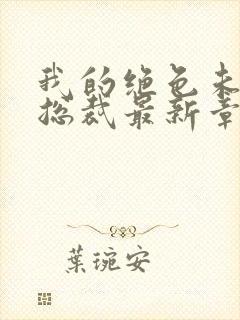 我的绝色未
总裁最新章
葉琬安